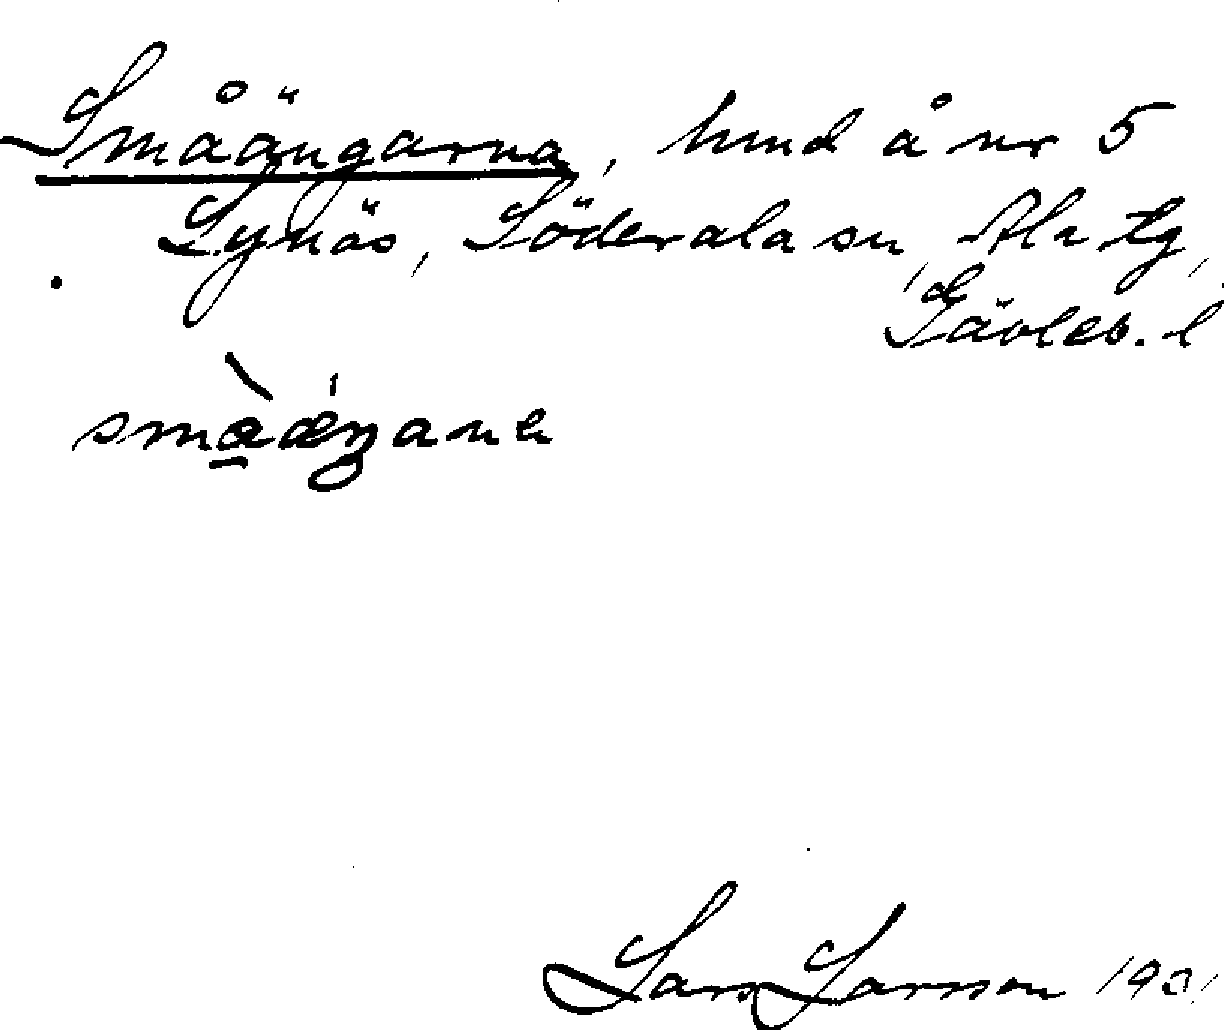 Småängarna, hmd å nr 5
Lynäs, Söderala sn, Ala tg,
Gävleb. l
småæŋana
Lars Larsson 1931